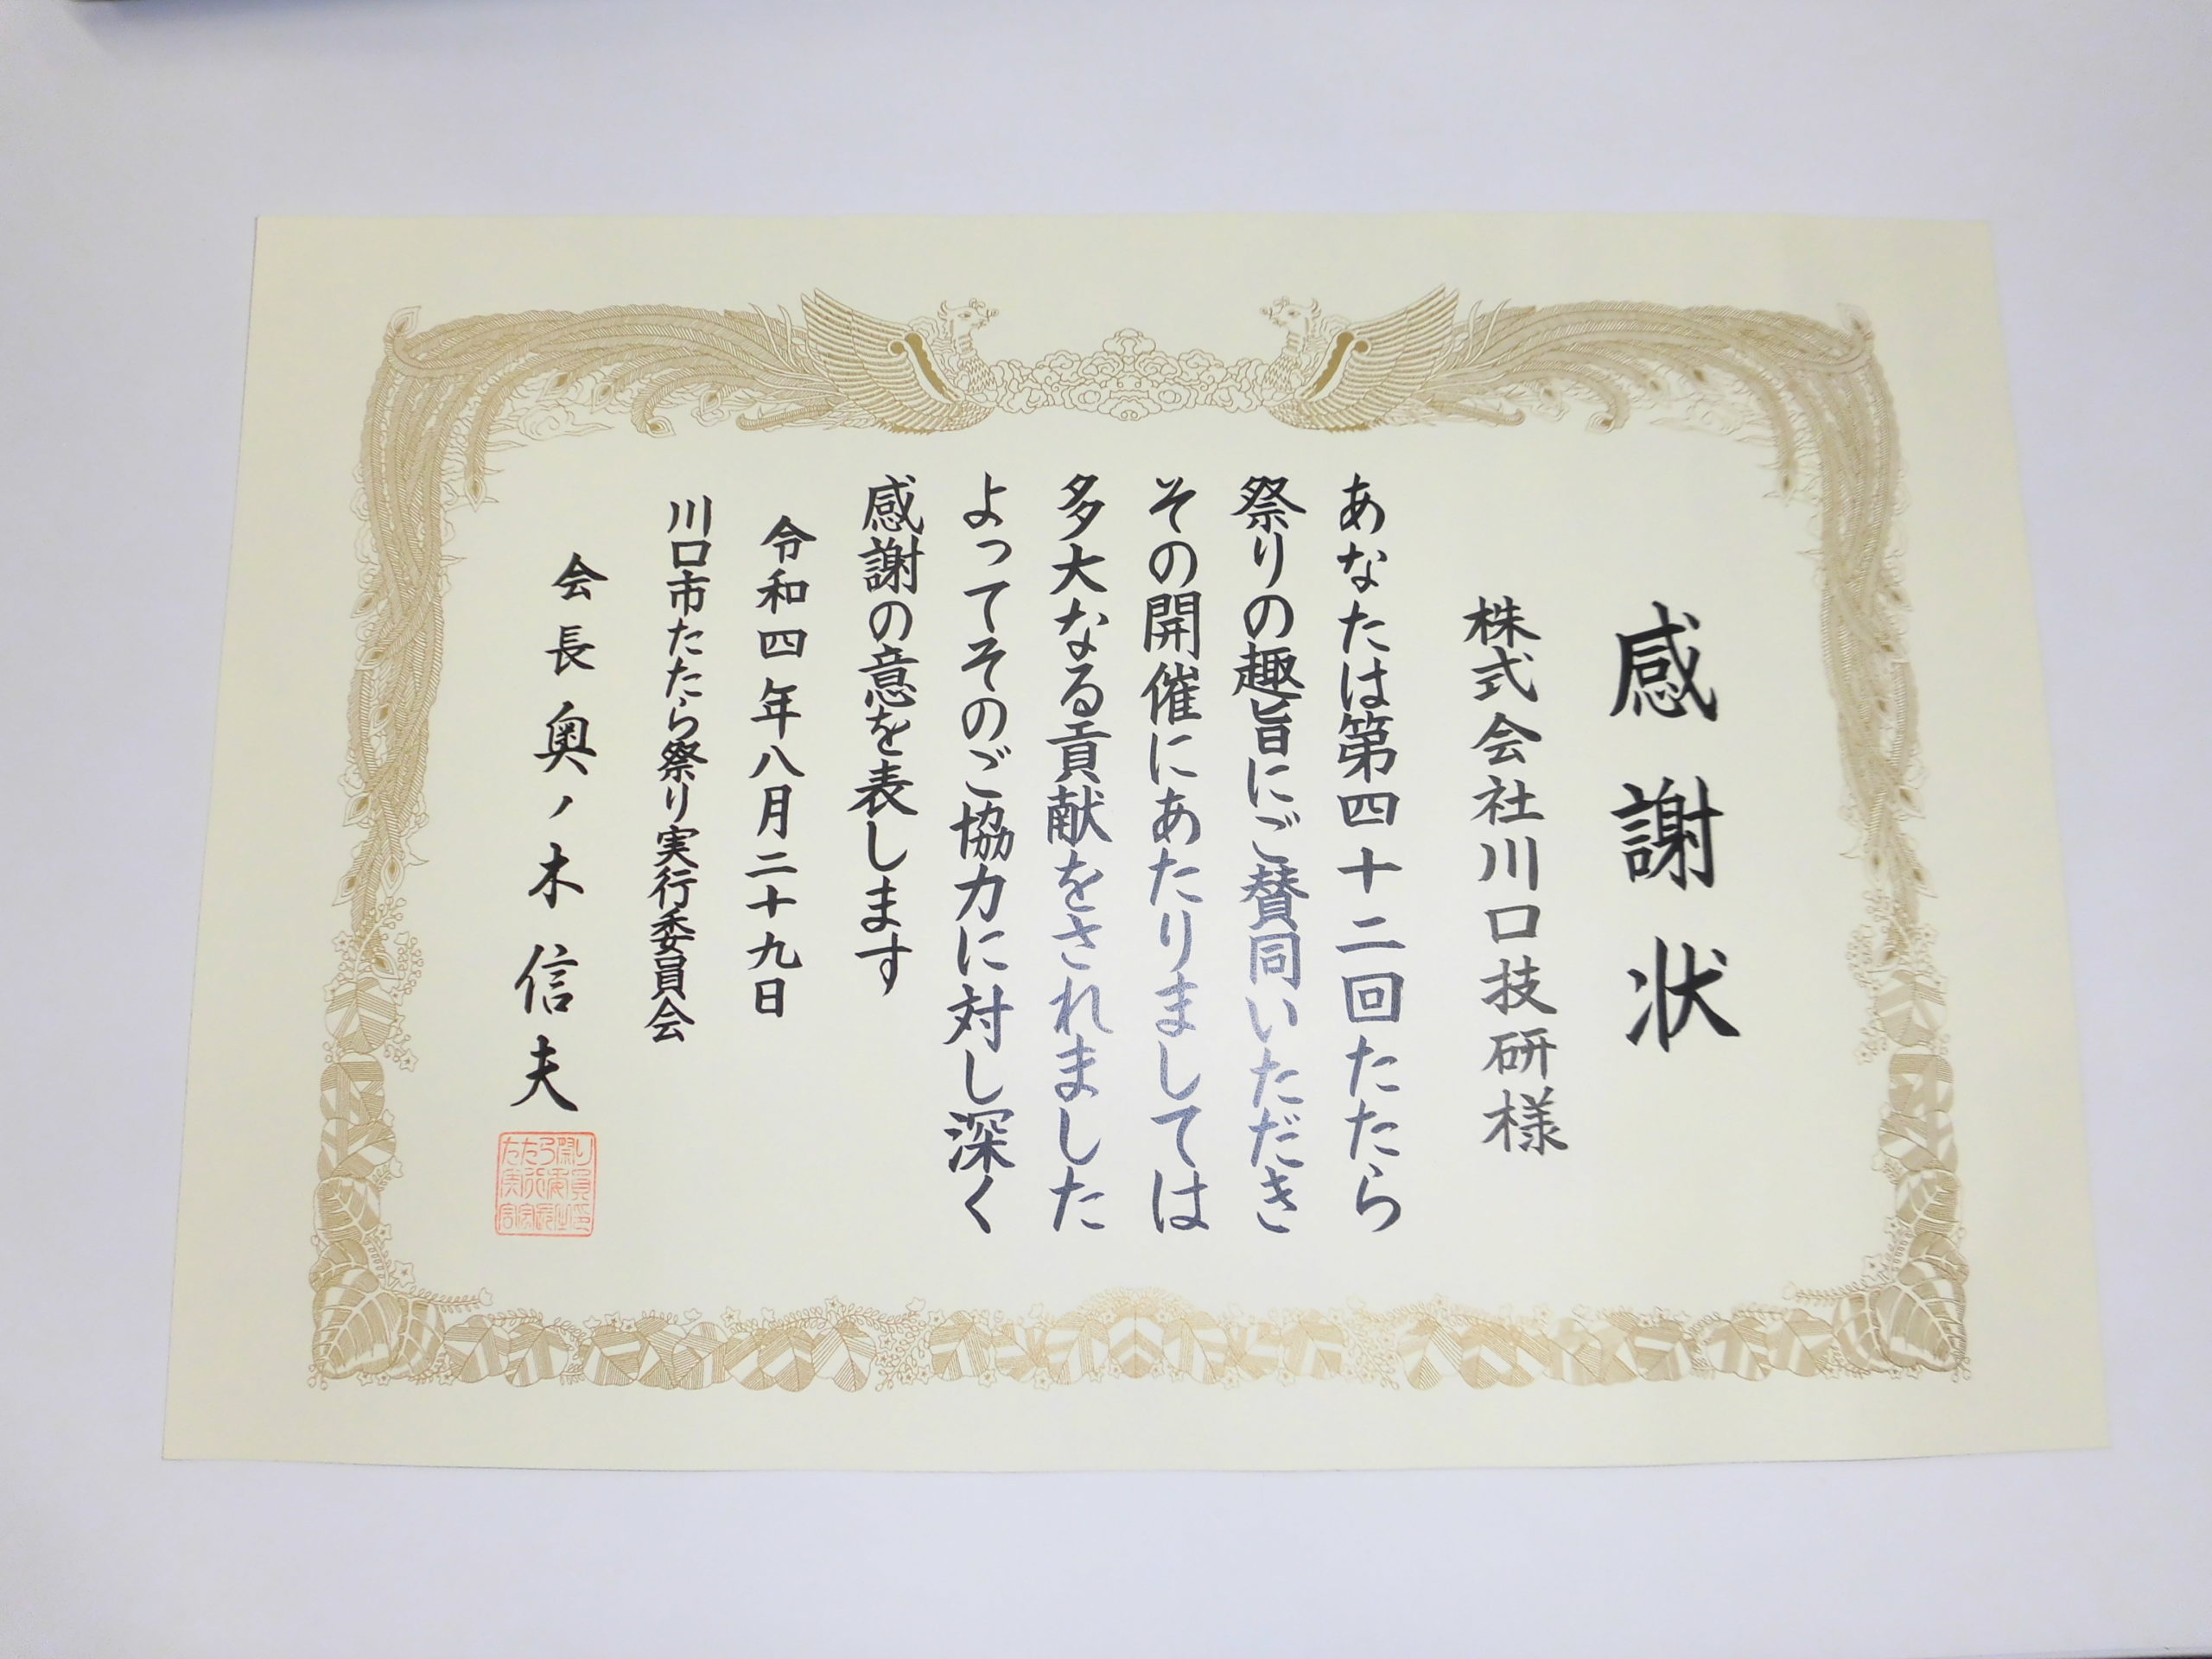 感謝状
株式会社川口技研様
あなたは第四十二回たたら
祭りの趣旨にご賛同いただき
その開催にあたりましては
多大なる貢献をされました
よってそのご協力に対し深く
感謝の意を表します
令和四年八月二十九日
川口市たたら祭り実行委員会
会長奥ノ木信夫